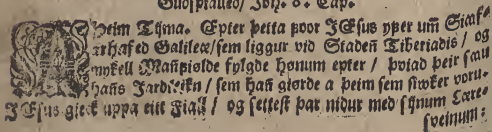 Guðspialled/ Joh. 6. Cap.
A Þeim Tijma. Epter þetta voor JEsus yfer um̃ Siaaf-
arhafed Galileæ/ sem liggur vid Staden Tiberiadis/ og
mykell Man̄fiolde fylgde hønum epter/ þviad þeir saau
han̄s Jardteikn/ sem han̄ giørde a þeim sem siwker voru.
JEsus gieck uppa eitt Fiall/ og settest þar nidur med sijnum Lære-
sveinum: